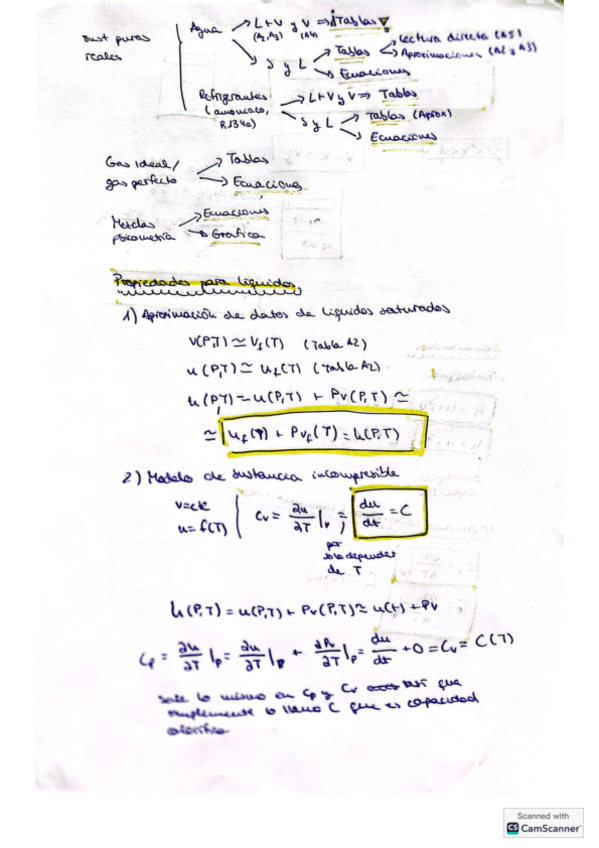 Sust puras reales
Agua → L+V y V ⇒ ¡Tablas!
(A2, A3) (A4)
→ S y L → Tablas → Lectura directa (A5)
→ Aproximaciones (A2 y A3)
→ Ecuaciones
Refrigerantes → L+V y V ⇒ Tablas
(amoniaco, R134a) → S y L → Tablas (Aprox)
→ Ecuaciones
Gas ideal/ gas perfecto → Tablas
→ Ecuaciones
Mezclas psicometria → Ecuaciones
→ Gráfica
Propiedades para líquidos
1) Aproximación de datos de líquidos saturados
v(P,T) ≃ v_f(T) (Tabla A2)
u(P,T) ≃ u_f(T) (Tabla A2)
h(P,T) = u(P,T) + Pv(P,T) ≃
≃ u_f(T) + Pv_f(T) = h(P,T)
2) Modelo de sustancia incompresible
v=cte
u=f(T)
Cv = ∂u/∂T |v = du/dt = C
por solo depender de T
h(P,T) = u(P,T) + Pv(P,T) ≃ u(t) + Pv
Cp = ∂u/∂T |p = ∂u/∂T |p + ∂Pv/∂T |p = du/dt + 0 = Cv = C(T)
Sale lo mismo en Cp y Cv así que
simplemente lo llamo C que es capacidad
calorífica
Scanned with
CS CamScanner